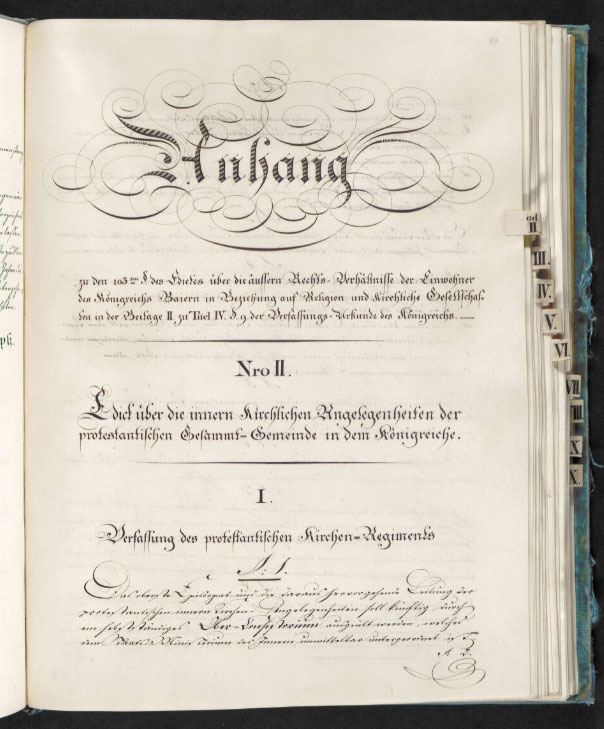 77
Anhang
zu den 103ten §. des Edictes über die äussern Rechts-Verhältnisse der Einwohner
des Königreichs Baiern in Beziehung auf Religion und kirchliche Gesellschaf-
ten in der Beilage II. zu Titel IV. §. 9. der Verfassungs-Urkunde des Königreichs.
Nro II.
Edict über die innern Kirchlichen Angelegenheiten der
protestantischen Gesammt-Gemeinde in dem Königreiche.
I.
Verfassung des protestantischen Kirchen-Regiments
§. 1.
Das oberste Episcopat und die daraus hervorgehende Leitung der
protestantischen innern Kirchen-Angelegenheiten soll künftig durch
ein selbstständiges Ober-Consistorium ausgeübt werden, welches
dem Staats-Ministerium des Innern unmittelbar untergeordnet ist.
§. 2.
ad
II.
III.
IV.
V.
VI.
VII.
VIII.
X.
X.